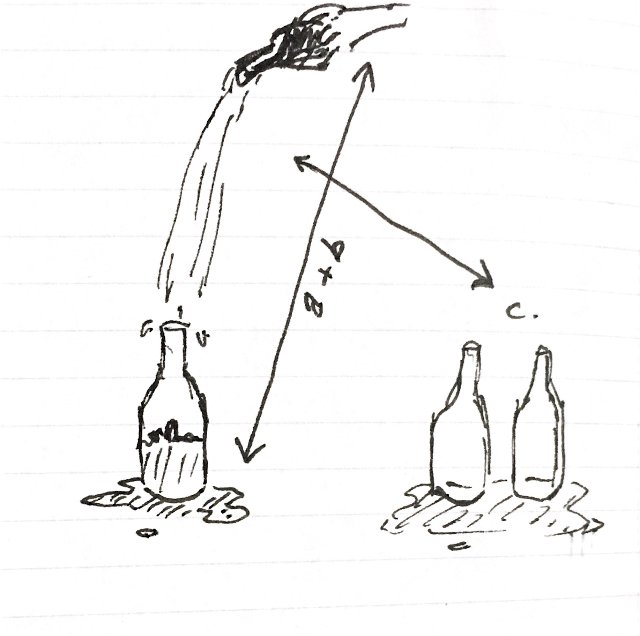 a + b
c.